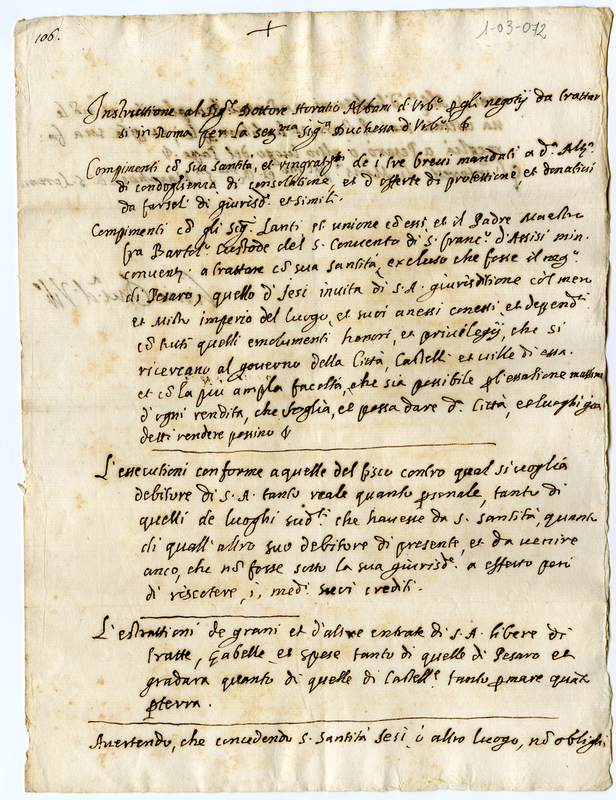 106.
1-03-072
Instruttione al Sig.r Dottore Horatio Albani d'Urb.o p gli negotij da trattar
si in Roma per la ser.ma Sig.ra Duchessa d'Urb.o
Compimenti cō sua santità, et ringratiam.ti de i tre brevi mandati a d.a Alt.a
di condoglienza, di consolatione, et d'offerte di protettione, et donativi
da farseli di giurisd.e et simili.
Compimenti cō gli Sig.ri Lanti et unione cō essi, et il Padre Maestro
fra Bartol.o Custode del S. Convento di S. Franc.o d'Assisi min.
conventj. a trattare cō sua santità, excluso che fosse il neg.o
di Pesaro, quello d'Jesi in vita di S.A. giurisditione col mero
et Misto imperio del luogo, et suoi anessi conessi, et depend.ti
cō tutti quelli emolumenti honori, et privilegij, che si
ricercano al governo della Città, Castelli et ville di essa.
et cō la più ampla facoltà, che sia possibile p l'essatione massime
d'ogni rendita, che soglia, et possa dare d.a Città, et luoghi già
detti rendere possino
L'essecutioni conforme a quelle del fisco contro qual si voglia
debitore di S.A. tanto reale quanto psonale, tanto di
quelli de luoghi sud.ti che havesse da S. Santità, quanto
di quall'altro suo debitore di presente, et da venire
anco, che nō fosse sotto la sua giurisd.e a effetto però
di riscotere, i, medi suoi crediti.
L'estrattioni de grani et d'altre entrate di S.A. libere di
tratte, gabelle et spese tanto di quelle di Pesaro et
gradara quanto di quelle di Castell.e tanto p mare quāto
p terra.
Avertendo, che concedendo S. Santità Jesi ò altro luogo, nō oblighi